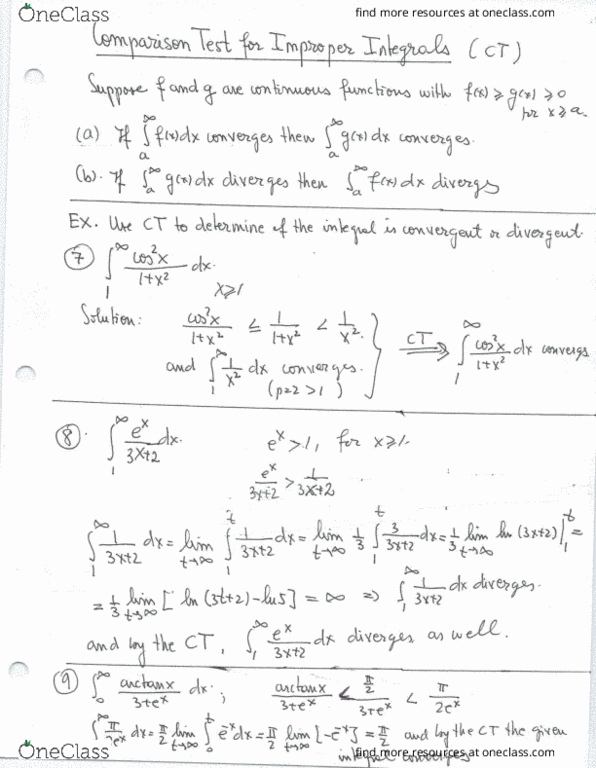 OneClass
find more resources at oneclass.com
Comparison Test for Improper Integrals (CT)
Suppose f and g are continuous functions with f(x) ≥ g(x) ≥ 0
for x ≥ a.
(a) If ∫_a^∞ f(x)dx converges then ∫_a^∞ g(x)dx converges.
(b). If ∫_a^∞ g(x)dx diverges then ∫_a^∞ f(x)dx diverges
EX. Use CT to determine if the integral is convergent or divergent.
⑦ ∫_1^∞ cos²x/(1+x²) dx.
x≥1
Solution: cos²x/(1+x²) ≤ 1/(1+x²) < 1/x². } CT ⟹ ∫_1^∞ cos²x/(1+x²) dx converges
and ∫_1^∞ 1/x² dx converges.
(p=2>1)
⑧. ∫_1^∞ e^x/(3x+2) dx. e^x >1, for x≥1.
e^x/(3x+2) > 1/(3x+2)
∫_1^∞ 1/(3x+2) dx = lim_{t→∞} ∫_1^t 1/(3x+2) dx = lim_{t→∞} 1/3 ∫_1^t 3/(3x+2) dx = 1/3 lim_{t→∞} ln(3x+2)|_1^t =
= 1/3 lim_{t→∞} [ln(3t+2)-ln5] = ∞ ⇒ ∫_1^∞ 1/(3x+2) dx diverges.
and by the CT, ∫_1^∞ e^x/(3x+2) dx diverges as well.
⑨ ∫_0^∞ arctanx/(3+e^x) dx.; arctanx/(3+e^x) < (π/2)/(3+e^x) < π/(2e^x)
dx = π/2 lim_{t→∞} ∫_0^t e^-x dx = π/2 lim_{t→∞} [-e^-x] = π/2 and by the CT the given
integral converges
OneClass
find more resources at oneclass.com